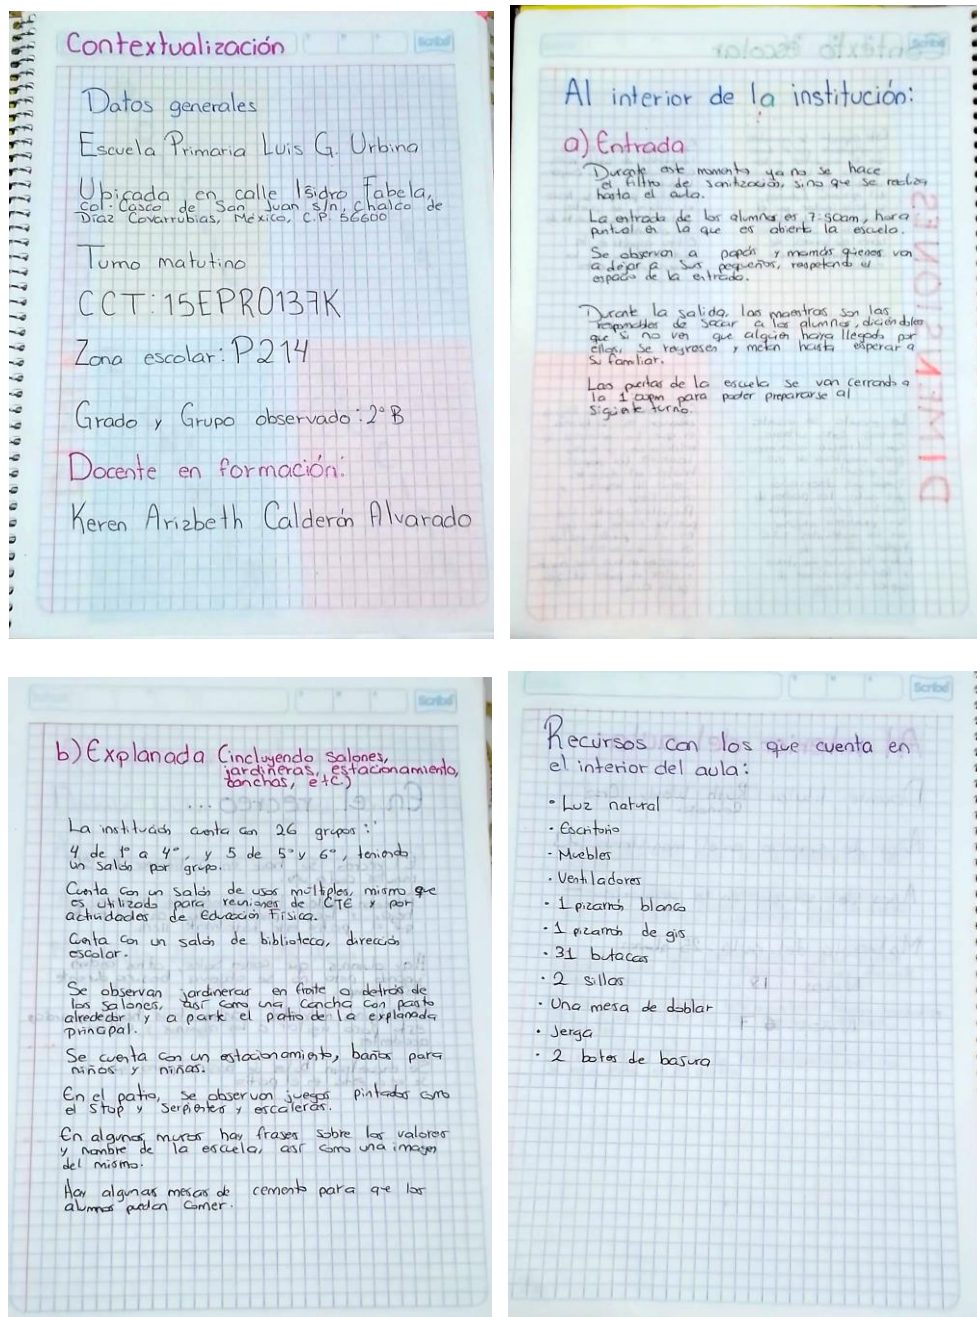 Contextualización
Scribe
Datos generales
Escuela Primaria Luis G. Urbina
Ubicada en calle Isidro Fabela,
Col. Casco de San Juan s/n, Chalco de
Díaz Covarrubias, México, C.P. 56600
Turno matutino
CCT: 15EPR0137K
Zona escolar: P214
Grado y Grupo observado: 2° B
Docente en formación:
Keren Arizbeth Calderón Alvarado
Al interior de la institución:
a) Entrada
Durante este momento ya no se hace
el filtro de sanitización, sino que se realiza
hasta el aula.
La entrada de los alumnos es 7:50am, hora
puntual en la que es abierta la escuela.
Se observan a papás y mamás quienes van
a dejar a sus pequeños, respetando el
espacio de la entrada.
Durante la salida, las maestras son las
responsables de sacar a los alumnos, diciéndoles
que si no ven que alguien haya llegado por
ellos, se regresen y metan hasta esperar a
su familiar.
Las puertas de la escuela se van cerrando a
la 1 pm para poder prepararse al
siguiente turno.
Scribe
b) Explanada (incluyendo salones,
jardineras, estacionamiento,
canchas, etc.)
La institución cuenta con 26 grupos:
4 de 1° a 4°, y 5 de 5° y 6°, teniendo
un salón por grupo.
Cuenta con un salón de usos múltiples, mismo que
es utilizado para reuniones de CTE y por
actividades de Educación Física.
Cuenta con un salón de biblioteca, dirección
escolar.
Se observan jardineras en frente o detrás de
los salones, así como una cancha con pasto
alrededor y a parte el patio de la explanada
principal.
Se cuenta con un estacionamiento, baños para
niños y niñas.
En el patio, se observan juegos pintados como
el stop y serpientes y escaleras.
En algunos muros hay frases sobre los valores
y nombre de la escuela, así como una imagen
del mismo.
Hay algunas mesas de cemento para que los
alumnos puedan comer.
Scribe
Recursos con los que cuenta en
el interior del aula:
· Luz natural
· Escritorio
· Muebles
· Ventiladores
· 1 pizarrón blanco
· 1 pizarrón de gis
· 31 butacas
· 2 sillas
· Una mesa de doblar
· Jerga
· 2 botes de basura